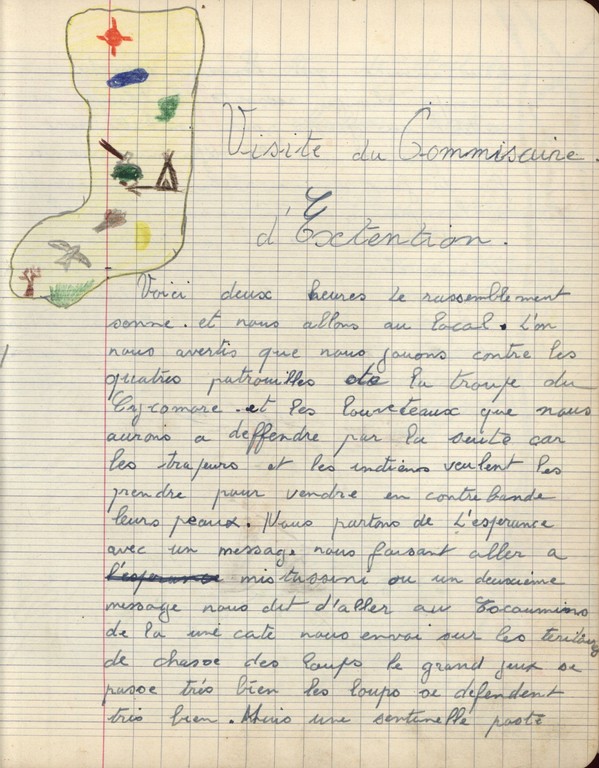 Visite du Commisaire.
d'Extention.
Voici deux heures le rassemblement
sonne. et nous allons au local. L'on
nous avertis que nous jouons contre les
quatres patrouilles de la troupe du
et les louveteaux que nous
aurons a deffendre par la suite car
les trapeurs et les indiens veulent les
prendre pour vendre en contrebande
leurs peaux. Nous partons de L'esperance
avec un message nous faisant aller a
l'esperance mistassini ou un deuxième
message nous dit d'aller au
de la une carte nous envoi sur les
de chasse des loups le grand jeux se
passe très bien les loups se defendent
très bien. Mais une sentinelle posté